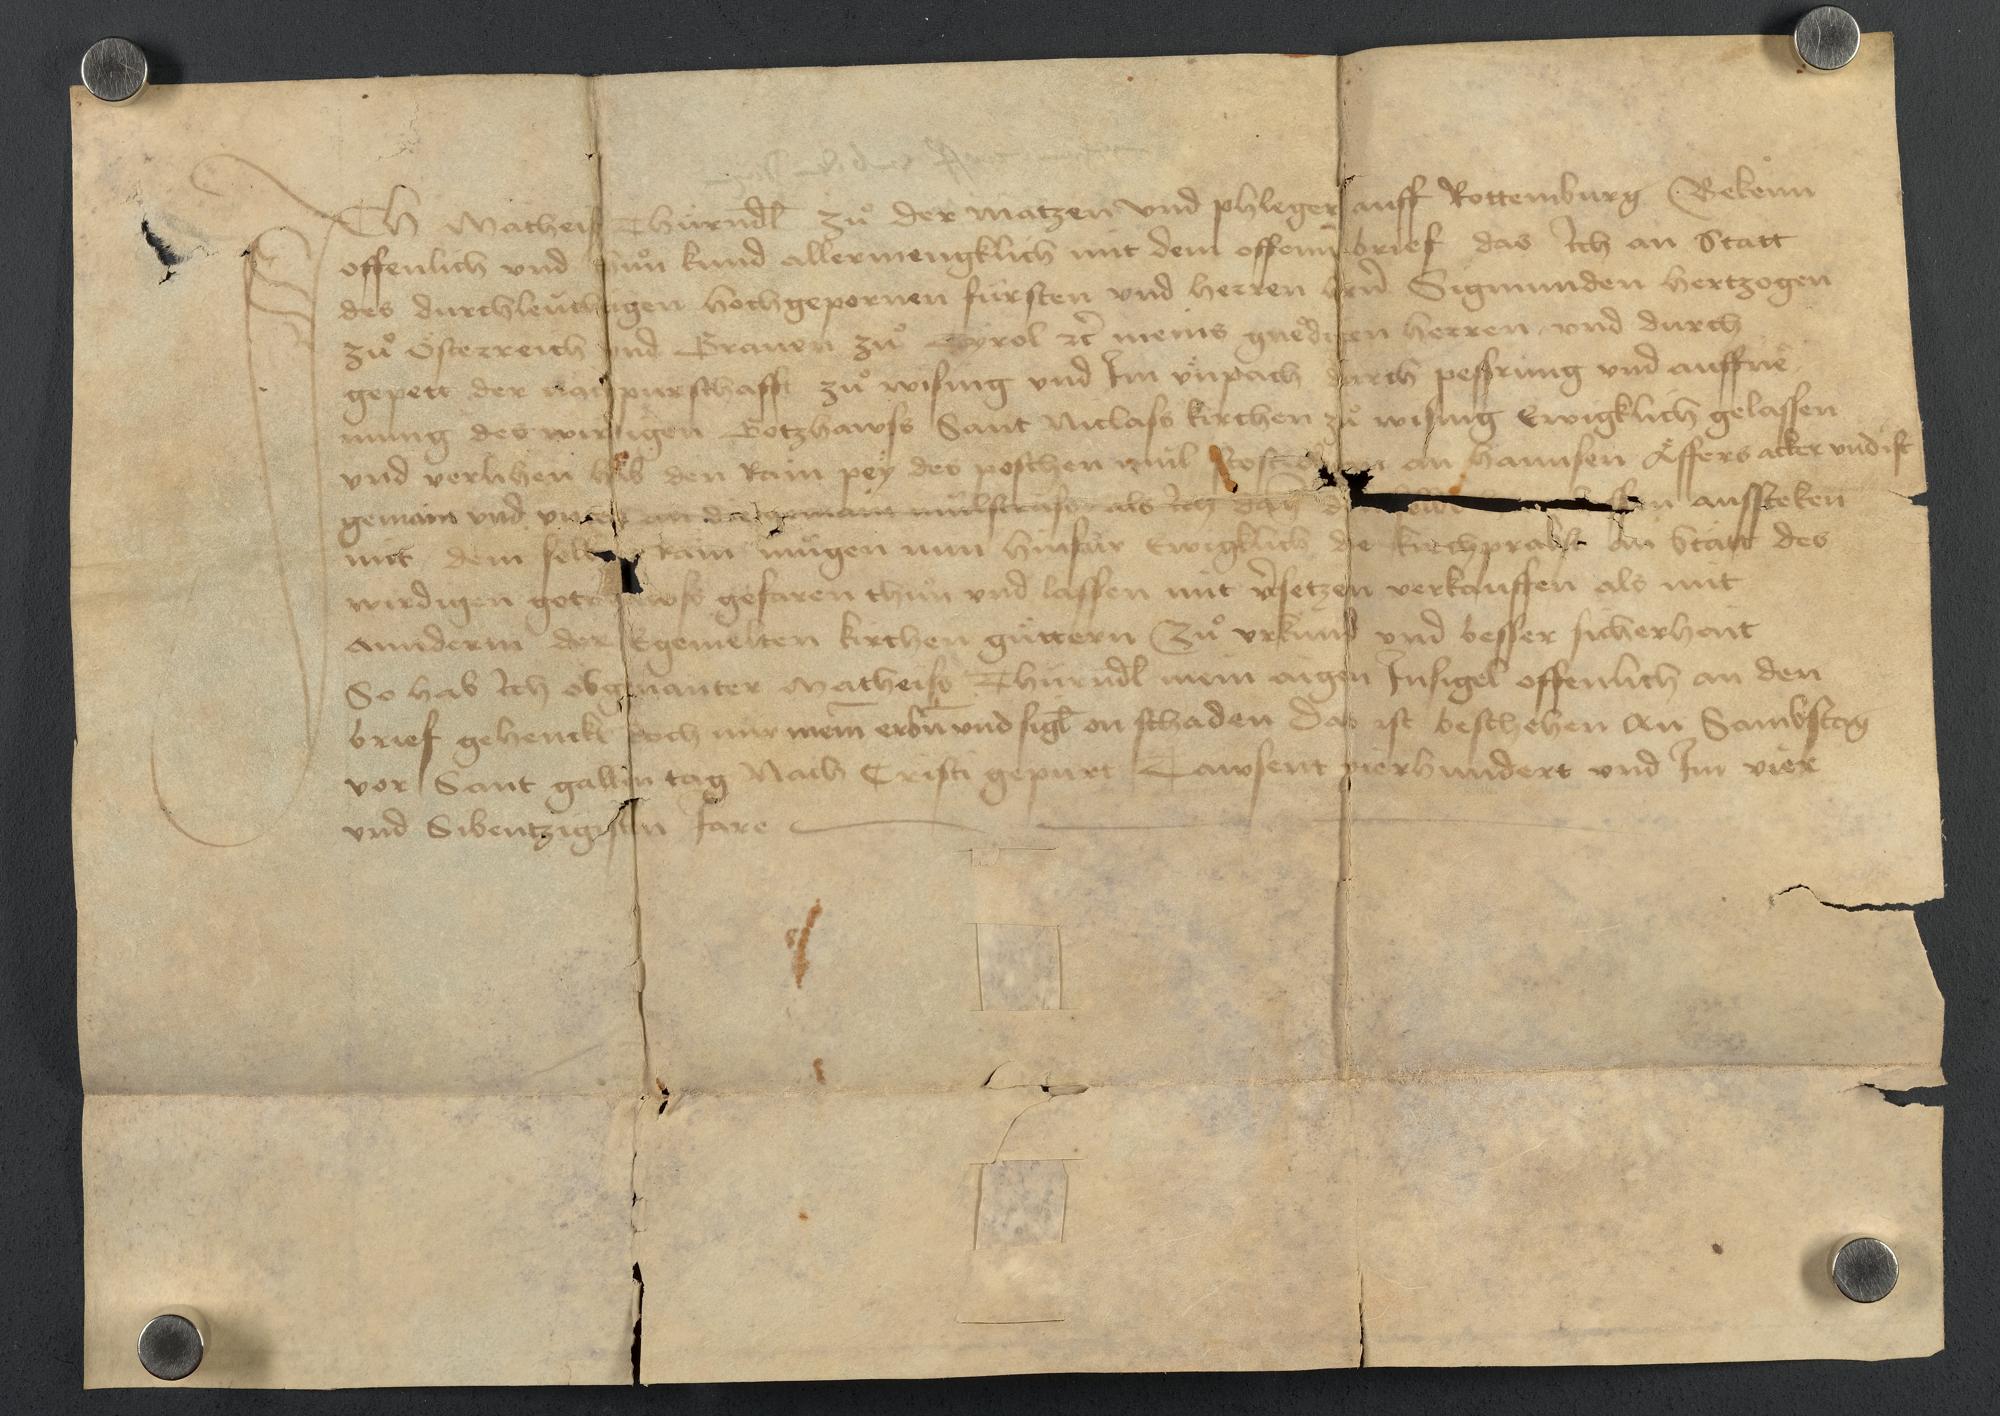 ICh Matheis Thürndl zů der matzen vnd phleger auff Rottemburg Bekenn
offenlich vnd thůn kund allermengklich mit dem offenn brief das Ich an Statt
des durchleüchtigen hochgepornen fürsten vnd herren hern Sigmunden hertzogen
zů Österreich vnd Grauen zů Tyrol ꝛc meins gnedigen herren vnd durch
gepett der nachpurschafft zů wising vnd Im vnpach durch pessrung vnd auffne
mung des wirdigen Gotzhawss Sant Niclass kirchen zů wising Ewigklich gelassen
vnd verlihen hab den Rain pey des poschen mül an hannsen Äffers acker vnd ist
gemain vnd an die gemain mülstrass als Ich aussteken
mit dem selben Rain mügen nun hinfür Ewigklich die kirchpräbst an Statt des
wirdigen gotzhawss gefaren thůn vnd lassen mit versetzen verkauffen als mit
anndern der Egemelten kirchen güttern Zů vrkund vnd besser sicherhait
So hab Ich obgenanter Matheiss Thürndl mein aigen Insigel offenlich an den
brief gehenckt doch mir mein erbn vnd sigl on schaden Das ist beschehen An Sambstag
vor Sant gallin tag Nach Cristi gepurt Tawsent vierhundert vnd Im vier
vnd Sibentzigisten Jare